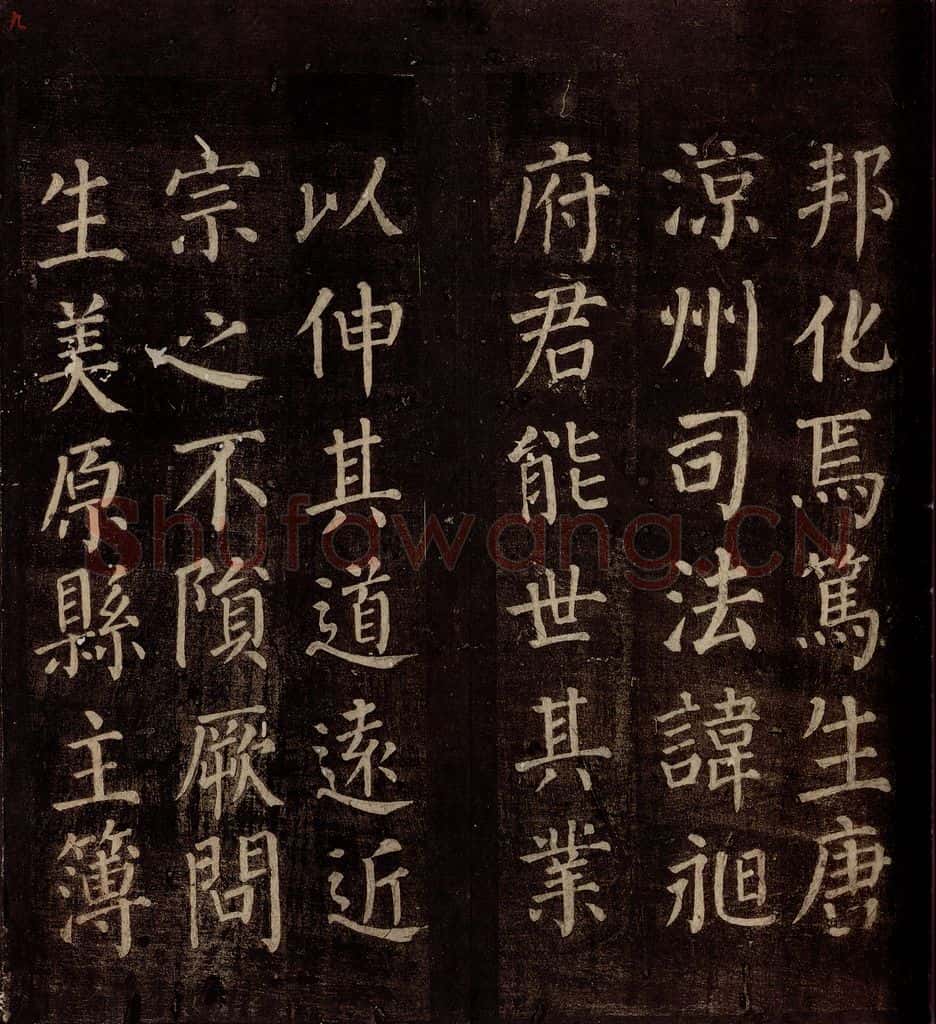 邦化焉篤生唐
涼州司法諱昶
府君能世其業
以伸其道遠近
宗之不隕厥問
生美原縣主簿
九
Shufawang.CN